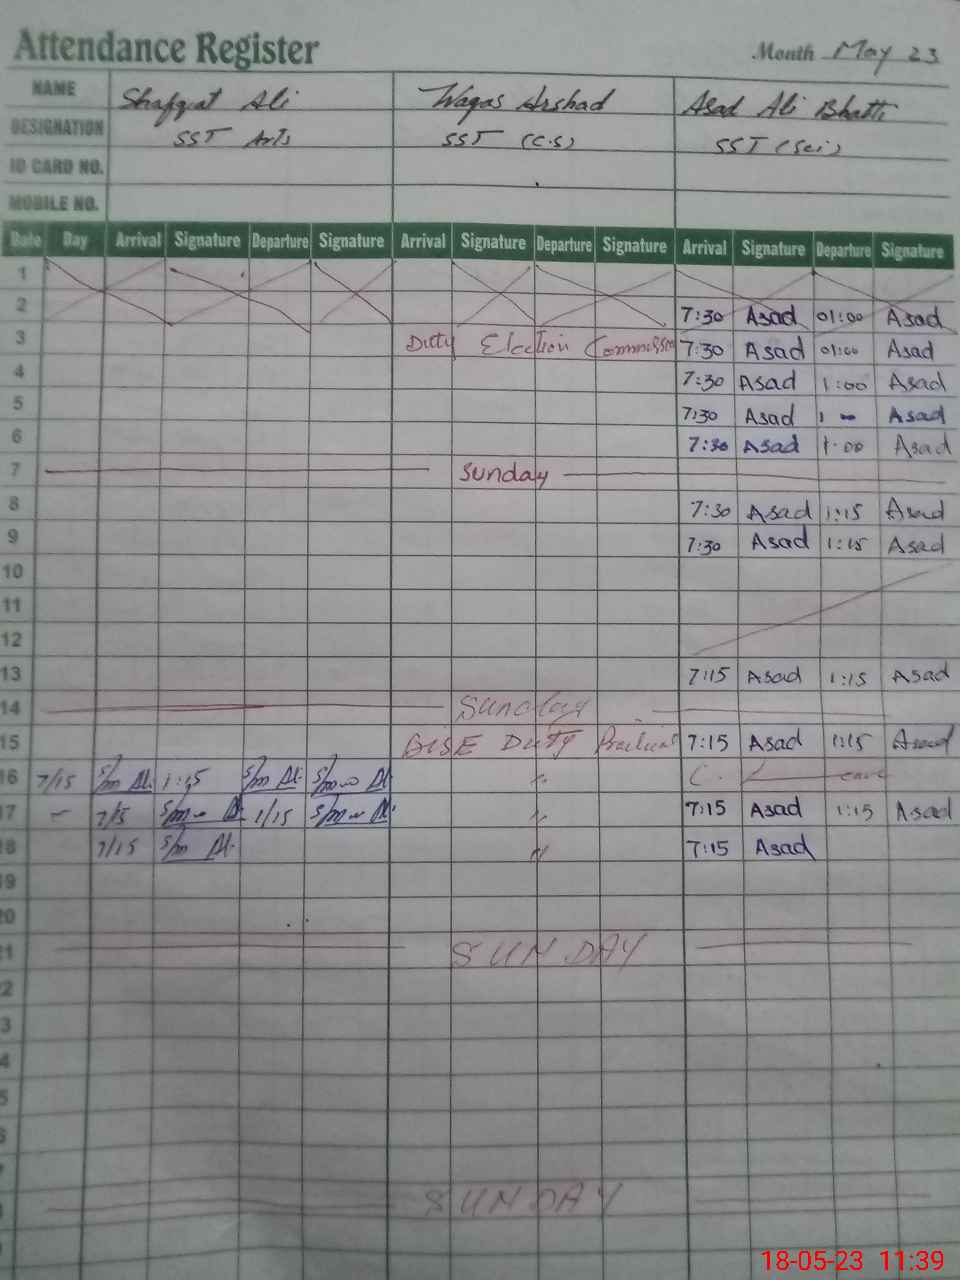 Attendance Register Month May 23
NAME Shafqat Ali Waqas Arshad Asad Ali Bhatti
DESIGNATION SST Arts SST (C.S) SST (Sci)
ID CARD NO.
MOBILE NO.
Date Day Arrival Signature Departure Signature Arrival Signature Departure Signature Arrival Signature Departure Signature
1
2 7:30 Asad 01:00 Asad
3 Duty Election Commission 7:30 Asad 01:00 Asad
4 7:30 Asad 1:00 Asad
5 7:30 Asad 1 Asad
6 7:30 Asad 1:00 Asad
7 Sunday
8 7:30 Asad 1:15 Asad
9 7:30 Asad 1:15 Asad
10
11
12
13 7:15 Asad 1:15 Asad
14 Sunday
15 BISE Duty Practical 7:15 Asad 1:15 Asad
16 7/15 1:15 " C. Leave
17 - 7/15 1/15 " 7:15 Asad 1:15 Asad
18 7/15 " 7:15 Asad
19
20
21 SUNDAY
2
3
4
5
6
SUNDAY
18-05-23 11:39